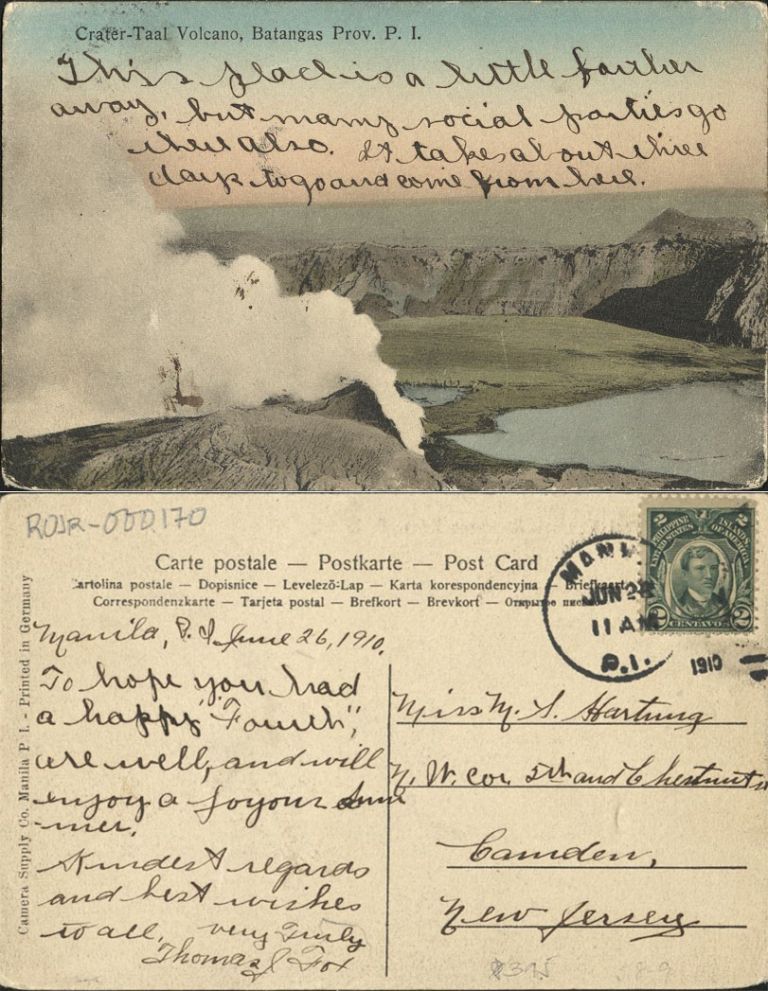 Crater-Taal Volcano, Batangas Prov. P. I.
This place is a little farther
away, but many social parties go
there also. It takes about three
days to go and come from here.
ROJR-000170
Carte postale — Postkarte — Post Card
Cartolina postale — Dopisnice — Levelező-Lap — Karta korespondencyjna — Briefkaart
Correspondenzkarte — Tarjeta postal — Brefkort — Brevkort — Открытое
2 PHILIPPINE ISLANDS 2
UNITED STATES OF AMERICA
2 CENTAVOS 2
JUN 28
11 AM
P.I.
1910
Camera Supply Co. Manila P I. - Printed in Germany
Manila, P. I. June 26, 1910.
To hope you had
a happy "Fourth",
are well, and will
enjoy a joyous sum
-mer.
Kindest regards
and best wishes
to all, very Truly
Thomas J Fox
Miss M. S. Hartung
N. W. cor 5th and Chestnut
Camden,
New Jersey